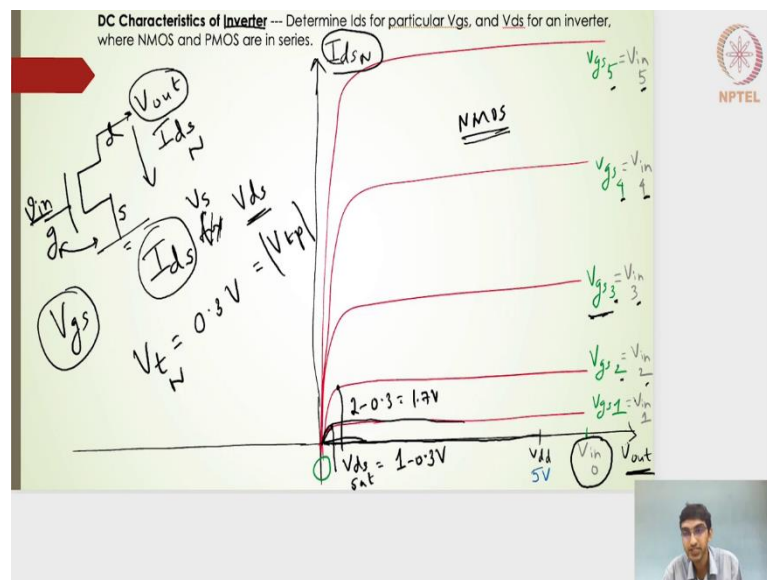 DC Characteristics of Inverter --- Determine Ids for particular Vgs, and Vds for an inverter,
where NMOS and PMOS are in series.
IdsN
NPTEL
Vgs5 = Vin5
NMOS
Vout
d
IdsN
Vin
g
s
Vs
Vds
Ids
Vgs
VtN = 0.3V = |Vtp|
Vgs4 = Vin4
Vgs3 = Vin3
Vgs2 = Vin2
Vgs1 = Vin1
2-0.3 = 1.7V
Vds sat = 1-0.3V
0
Vdd
5V
Vin0
Vout